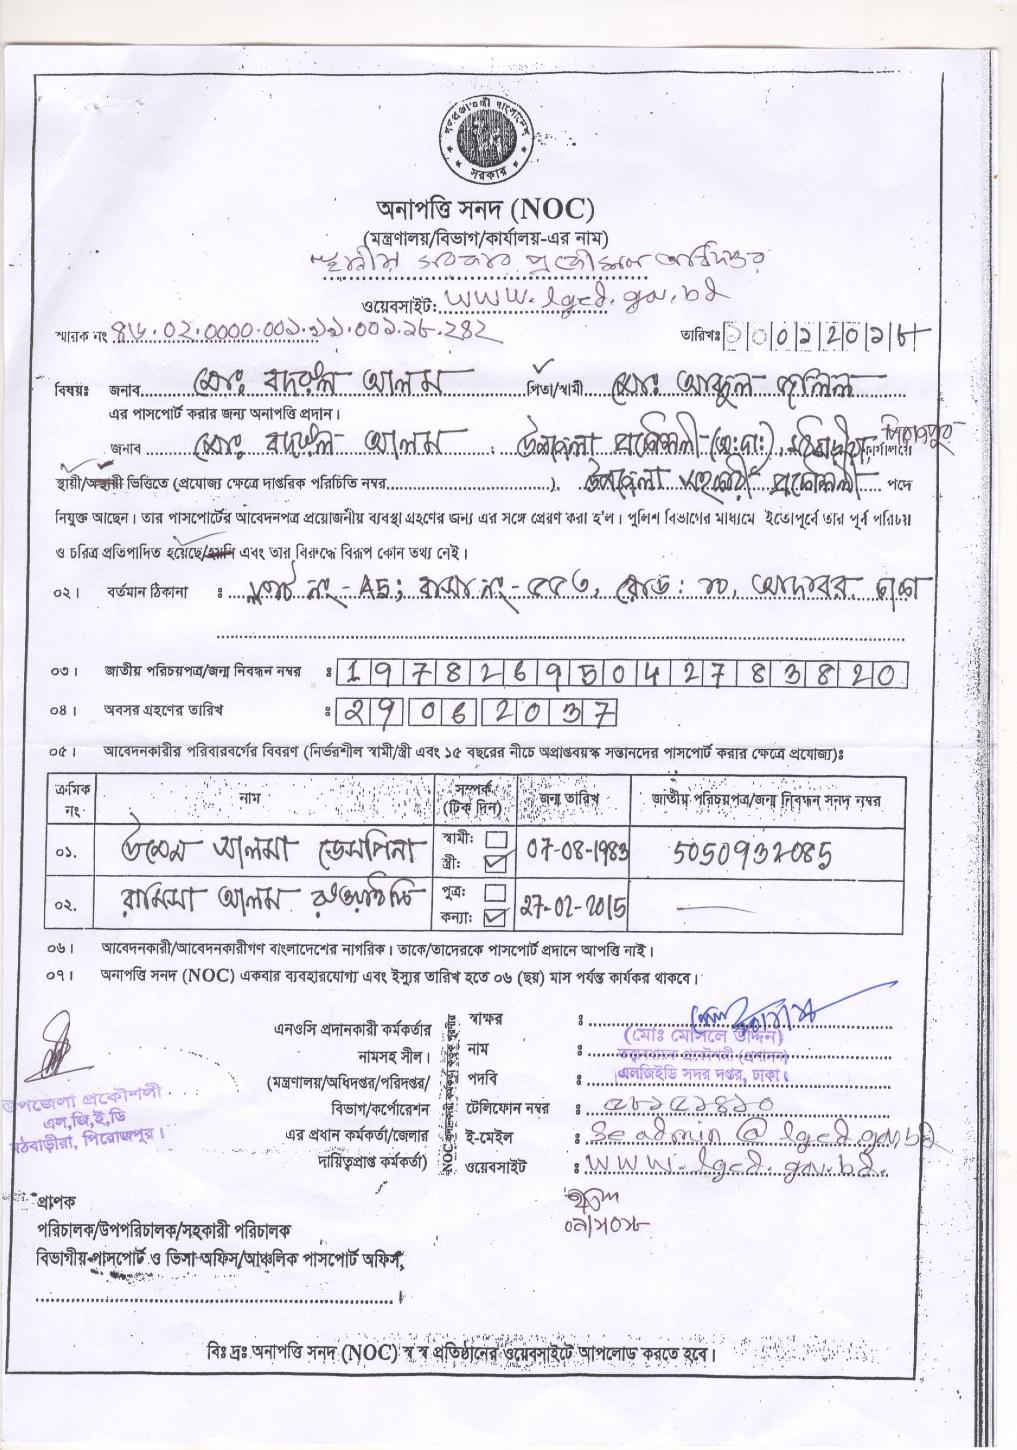 গণপ্রজাতন্ত্রী বাংলাদেশ
সরকার
অনাপত্তি সনদ (NOC)
(মন্ত্রণালয়/বিভাগ/কার্যালয়-এর নাম)
স্থানীয় সরকার প্রকৌশল অধিদপ্তর
ওয়েবসাইট: www.lged.gov.bd
স্মারক নং ৪৬.০২.০০০০.০০১.১১.০০১.১৮-২৪২ তারিখঃ ১০০১২০১৮
বিষয়ঃ জনাব মোঃ বদরুল আলম পিতা/স্বামী মোঃ আব্দুল জলিল
এর পাসপোর্ট করার জন্য অনাপত্তি প্রদান।
জনাব মোঃ বদরুল আলম : উপজেলা প্রকৌশলী (অঃদাঃ), মঠবাড়ীয়া, পিরোজপুর কার্যালয়ে
স্থায়ী/অস্থায়ী ভিত্তিতে (প্রযোজ্য ক্ষেত্রে দাপ্তরিক পরিচিতি নম্বর..........). উপজেলা সহকারী প্রকৌশলী পদে
নিযুক্ত আছেন। তার পাসপোর্টের আবেদনপত্র প্রয়োজনীয় ব্যবস্থা গ্রহণের জন্য এর সঙ্গে প্রেরণ করা হ'ল। পুলিশ বিভাগের মাধ্যমে ইতোপূর্বে তার পূর্ব পরিচয়
ও চরিত্র প্রতিপাদিত হয়েছে/হয়নি এবং তার বিরুদ্ধে বিরূপ কোন তথ্য নেই।
০২। বর্তমান ঠিকানা : ফ্লাট নং- A5; বাসা নং- ৫৫৩, রোড: ১০, আদাবর ঢাকা
০৩। জাতীয় পরিচয়পত্র/জন্ম নিবন্ধন নম্বর : 19782695042783820
০৪। অবসর গ্রহণের তারিখ : 29062037
০৫। আবেদনকারীর পরিবারবর্গের বিবরণ (নির্ভরশীল স্বামী/স্ত্রী এবং ১৫ বছরের নীচে অপ্রাপ্তবয়স্ক সন্তানদের পাসপোর্ট করার ক্ষেত্রে প্রযোজ্য)ঃ
ক্রমিক নং নাম সম্পর্ক (টিক দিন) জন্ম তারিখ জাতীয় পরিচয়পত্র/জন্ম নিবন্ধন সনদ নম্বর
০১. আলমা স্বামী: স্ত্রী: 07-08-1983 5050932085
০২. আলম পুত্র: কন্যা: 27-02-2015
০৬। আবেদনকারী/আবেদনকারীগণ বাংলাদেশের নাগরিক। তাকে/তাদেরকে পাসপোর্ট প্রদানে আপত্তি নাই।
০৭। অনাপত্তি সনদ (NOC) একবার ব্যবহারযোগ্য এবং ইস্যুর তারিখ হতে ০৬ (ছয়) মাস পর্যন্ত কার্যকর থাকবে।
এনওসি প্রদানকারী কর্মকর্তার
নামসহ সীল।
(মন্ত্রণালয়/অধিদপ্তর/পরিদপ্তর/
বিভাগ/কর্পোরেশন
এর প্রধান কর্মকর্তা/জেলার
দায়িত্বপ্রাপ্ত কর্মকর্তা)
NOC প্রদানকারী কর্মকর্তা কর্তৃক পূরণীয়
স্বাক্ষর :
নাম : (মোঃ মোসলে উদ্দিন)
পদবি : তত্ত্বাবধায়ক প্রকৌশলী (প্রশাসন)
এলজিইডি সদর দপ্তর, ঢাকা।
টেলিফোন নম্বর :
ই-মেইল : se admin@lged.gov.bd
ওয়েবসাইট : www.lged.gov.bd.
উপজেলা প্রকৌশলী
এল,জি,ই,ডি
মঠবাড়ীয়া, পিরোজপুর।
প্রাপক
পরিচালক/উপপরিচালক/সহকারী পরিচালক
বিভাগীয় পাসপোর্ট ও ভিসা অফিস/আঞ্চলিক পাসপোর্ট অফিস,
বিঃ দ্রঃ অনাপত্তি সনদ (NOC) স্ব স্ব প্রতিষ্ঠানের ওয়েবসাইটে আপলোড করতে হবে।